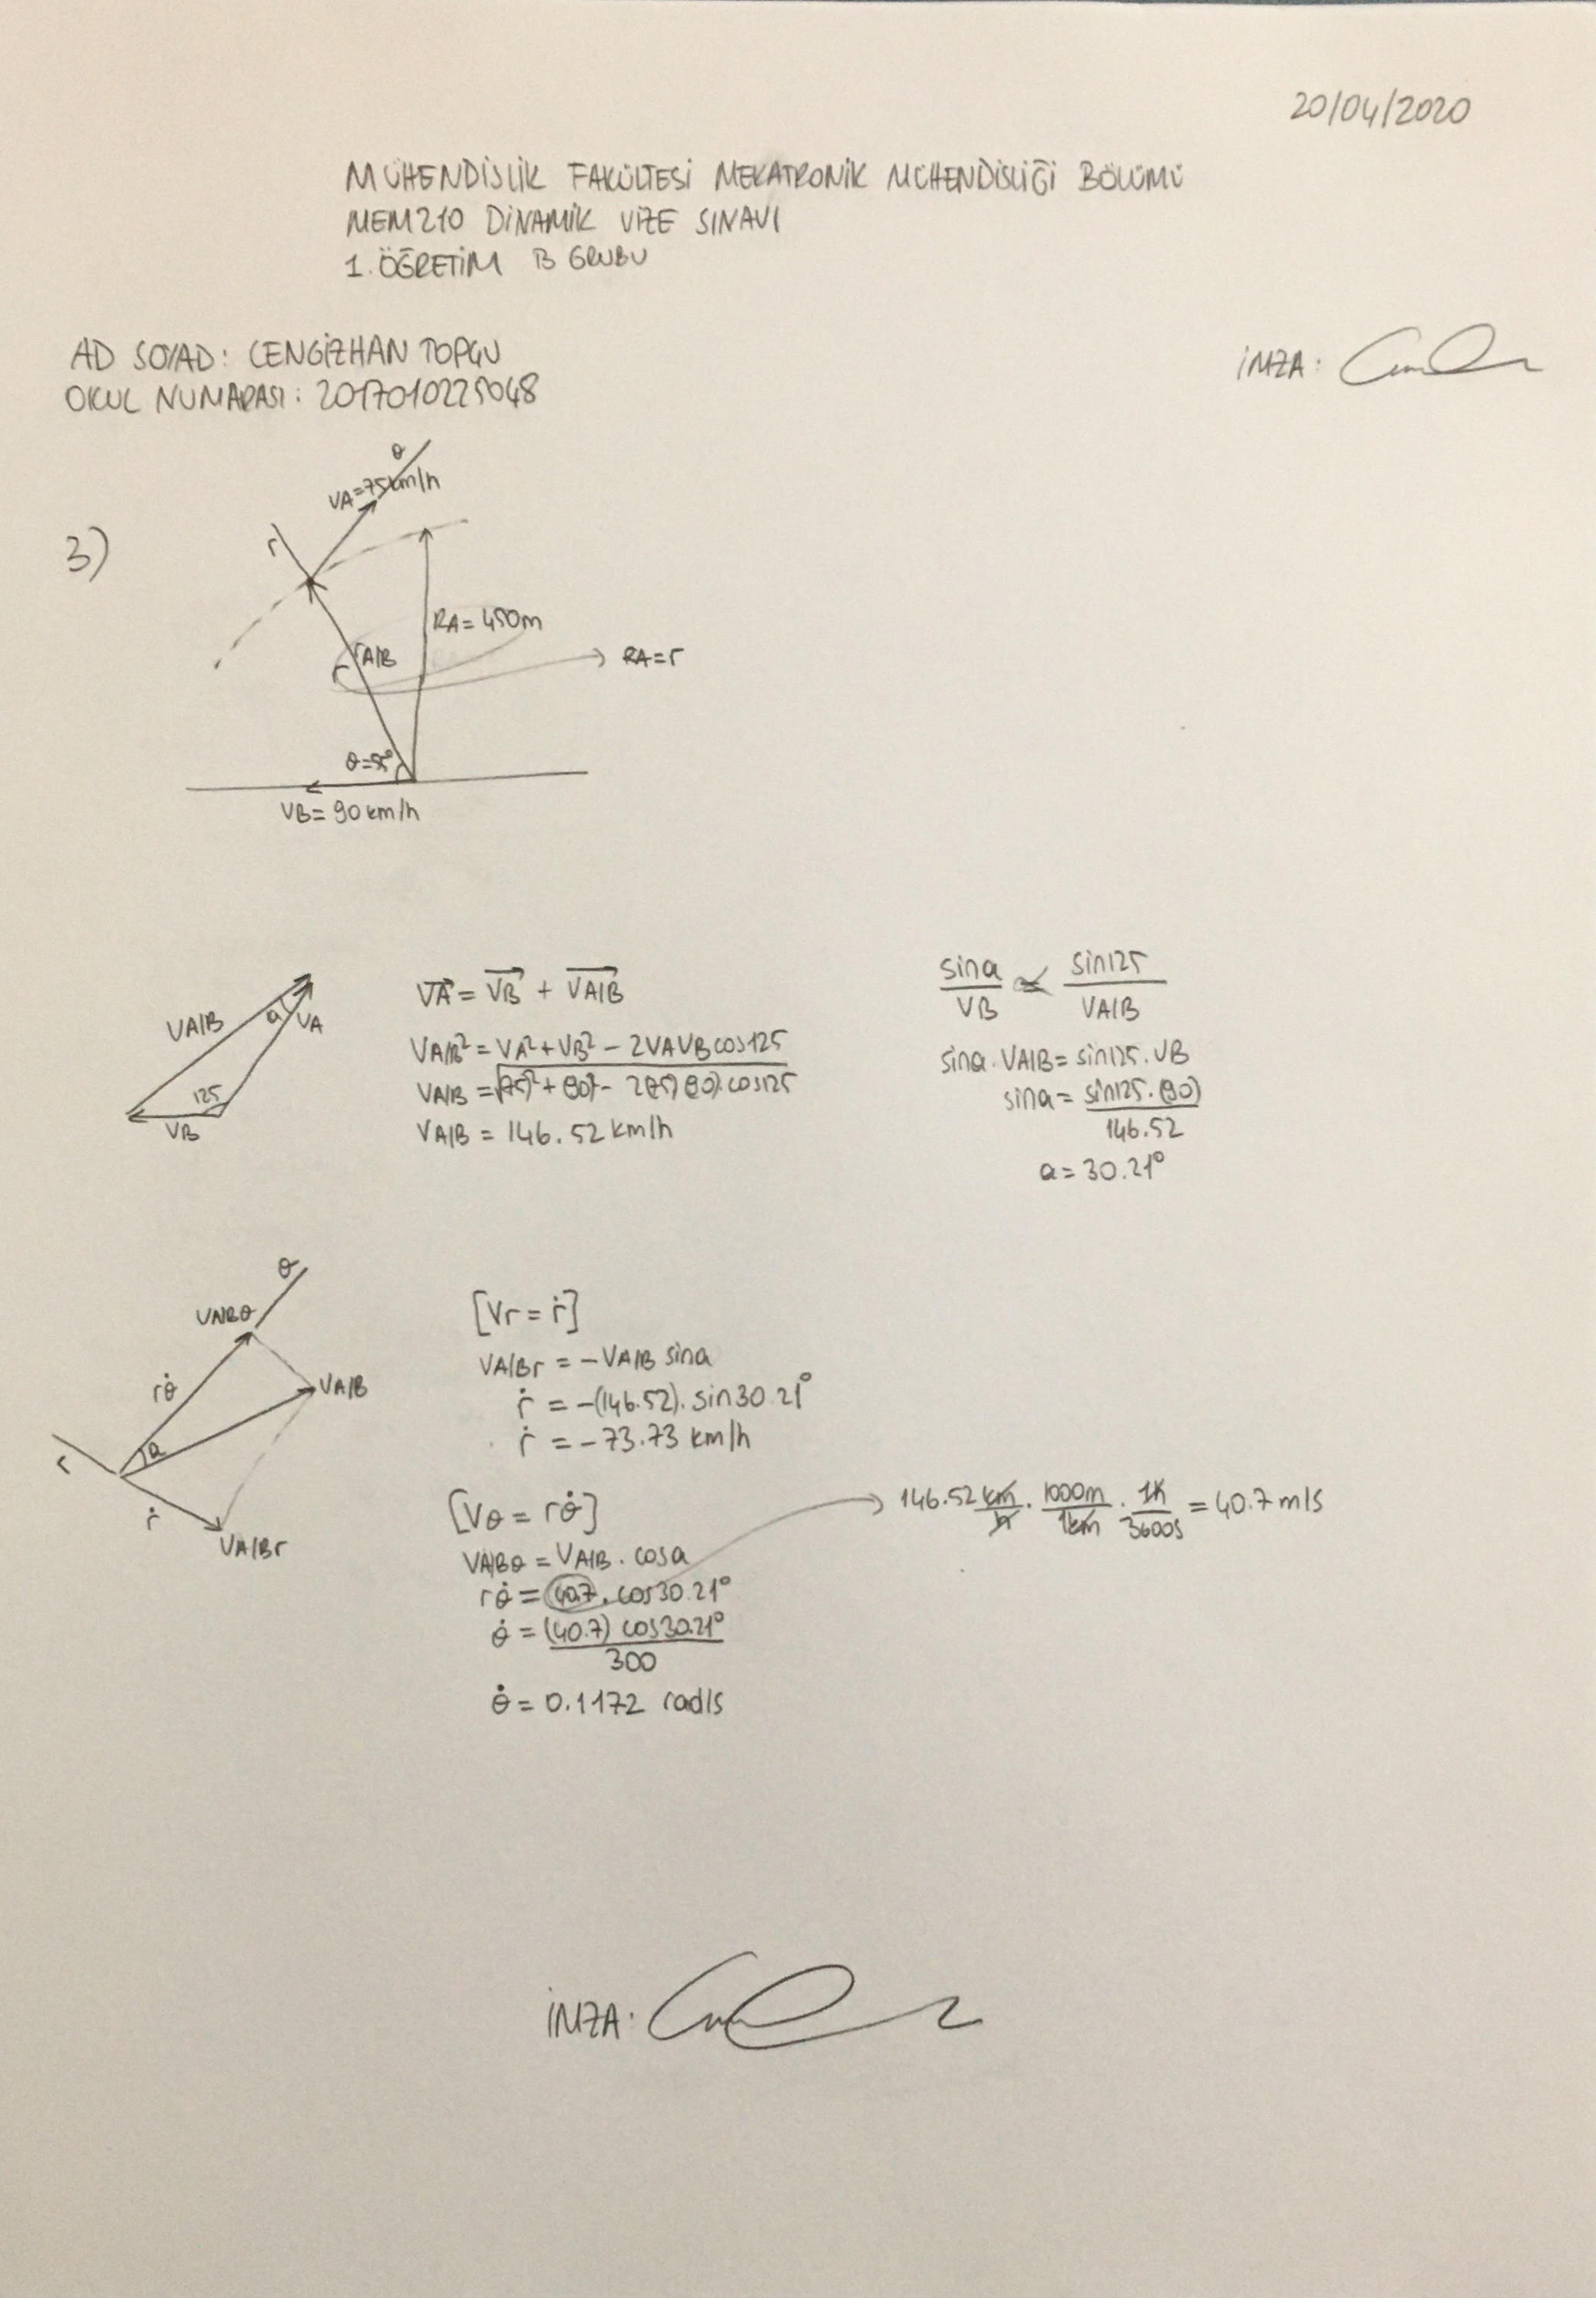 20/04/2020
MÜHENDİSLİK FAKÜLTESİ MEKATRONİK MÜHENDİSLİĞİ BÖLÜMÜ
MEM210 DİNAMİK VİZE SINAVI
1. ÖĞRETİM B GRUBU
AD SOYAD: CENGİZHAN TOPÇU
İMZA:
OKUL NUMARASI: 2017010225048
3)
θ
VA=75km/h
r
RA=450m
rA/B
r
RA=r
θ=55°
VB=90km/h
VA/B
a
VA
125
VB
VA = VB + VA/B
VA/B² = VA² + VB² - 2VAVBcos125
VA/B = √(75)² + (90)² - 2(75)(90).cos125
VA/B = 146.52 km/h
sina/VB = sin125/VA/B
sina.VA/B = sin125.VB
sina = sin125.(90)/146.52
a = 30.21°
θ
VA/Bθ
rθ̇
VA/B
a
r
ṙ
VA/Br
[Vr = ṙ]
VA/Br = -VA/B sina
ṙ = -(146.52).sin30.21°
ṙ = -73.73 km/h
[Vθ = rθ̇]
VA/Bθ = VA/B.cosa
rθ̇ = 40.7.cos30.21°
θ̇ = (40.7) cos30.21°/300
θ̇ = 0.1172 rad/s
146.52 km/h . 1000m/1km . 1h/3600s = 40.7 m/s
İMZA: